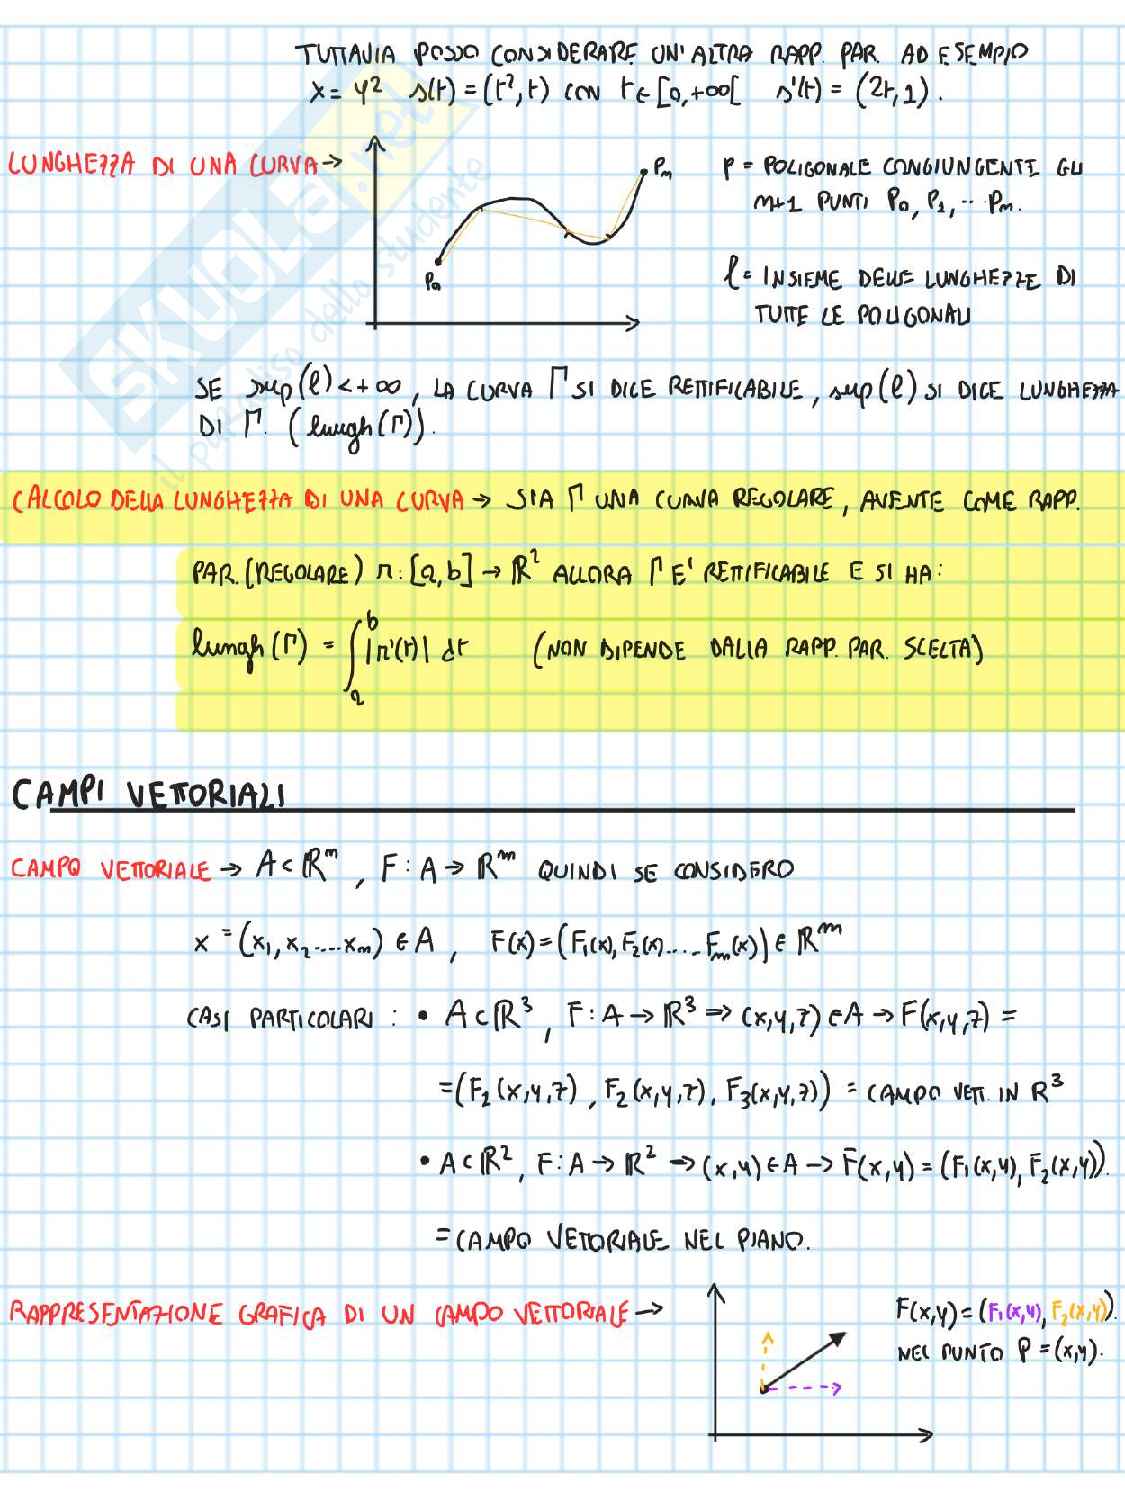 TUTTAVIA POSSO CONSIDERARE UN'ALTRA RAPP. PAR. AD ESEMPIO
x = y² s(t) = (t², t) CON t ∈ [0, +∞[ s'(t) = (2t, 1).
LUNGHEZZA DI UNA CURVA →
Pm
P0
P = POLIGONALE CONGIUNGENTE GLI
m+1 PUNTI P0, P1, ·· Pm.
l = INSIEME DELLE LUNGHEZZE DI
TUTTE LE POLIGONALI
SE sup(l) < +∞, LA CURVA Γ SI DICE RETTIFICABILE, sup(l) SI DICE LUNGHEZZA
DI Γ. (lungh(Γ)).
CALCOLO DELLA LUNGHEZZA DI UNA CURVA → SIA Γ UNA CURVA REGOLARE, AVENTE COME RAPP.
PAR. (REGOLARE) r : [a, b] → ℝ² ALLORA Γ E' RETTIFICABILE E SI HA:
lungh(Γ) = ∫_a^b |r'(t)| dt (NON DIPENDE DALLA RAPP. PAR. SCELTA)
CAMPI VETTORIALI
CAMPO VETTORIALE → A ⊂ ℝᵐ, F : A → ℝᵐ QUINDI SE CONSIDERO
x = (x₁, x₂ .... xm) ∈ A, F(x) = (F₁(x), F₂(x) .... Fm(x)) ∈ ℝᵐ
CASI PARTICOLARI : • A ⊂ ℝ³, F : A → ℝ³ ⇒ (x, y, z) ∈ A → F(x, y, z) =
= (F₂(x, y, z), F₂(x, y, z), F₃(x, y, z)) = CAMPO VETT. IN R³
• A ⊂ ℝ², F : A → ℝ² ⇒ (x, y) ∈ A → F(x, y) = (F₁(x, y), F₂(x, y)).
= CAMPO VETTORIALE NEL PIANO.
RAPPRESENTAZIONE GRAFICA DI UN CAMPO VETTORIALE →
F(x, y) = (F₁(x, y), F₂(x, y)).
NEL PUNTO P = (x, y).
SKUOLA.net
il paradiso dello studente